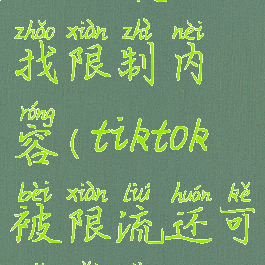 zhǎo xiàn zhì nèi
找限制内
róng
容(tiktok
bèi xiàn liú huán kě
被限流还可